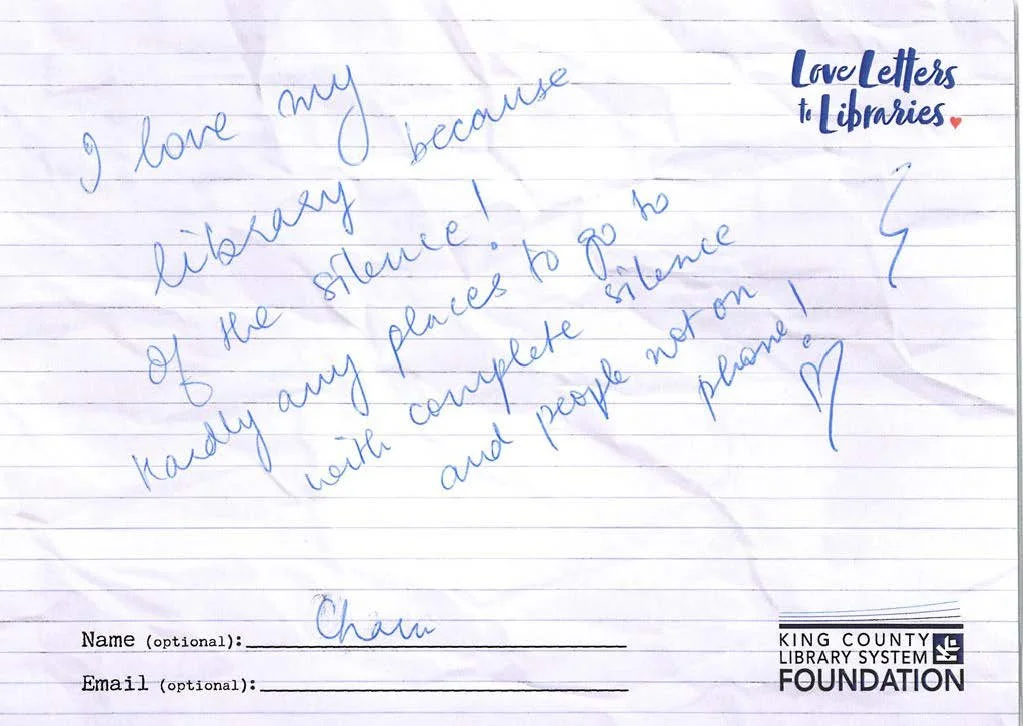 Love Letters
to Libraries
I love my
library because
of the silence!
Hardly any places to go to
with complete silence
and people not on
phone!
Name (optional):
Email (optional):
KING COUNTY
LIBRARY SYSTEM
FOUNDATION